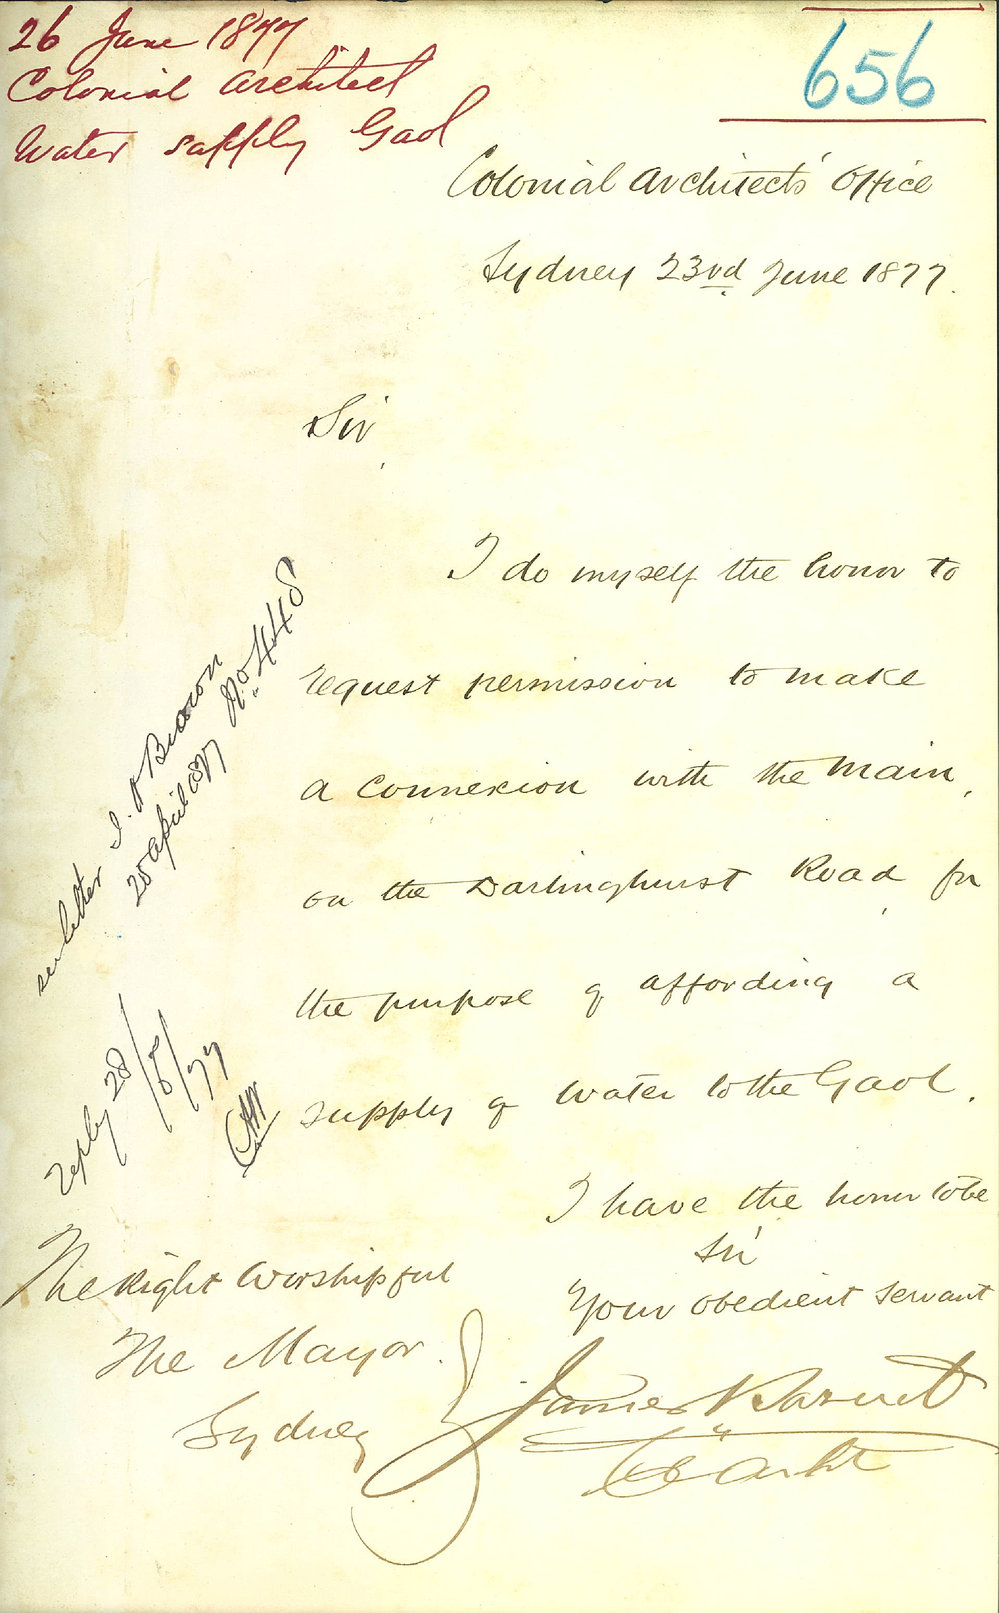 26 June 1877
Colonial Architect
Water supply Gaol
656
Colonial Architects' Office
Sydney 23rd June 1877.
Sir,
I do myself the honor to
request permission to make
a connexion with the Main,
on the Darlinghurst Road, for
the purpose of affording a
supply of water to the Gaol.
I have the honor to be
Sir
Your obedient servant
James Barnet
Col Archt
The Right Worshipful
The Mayor.
Sydney
see letter
25 April 1877 No. 448
reply 28/6/77